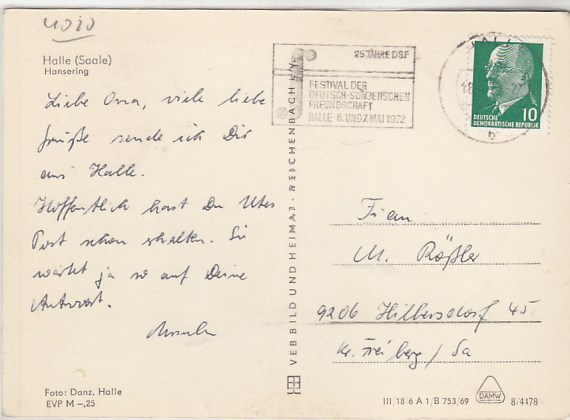 4020
Halle (Saale)
Hansering
Liebe Oma, viele liebe
Grüße sende ich Dir
aus Halle.
Hoffentlich hast Du Utes
Post schon erhalten. Sie
wartet ja so auf Deine
Antwort.
Foto: Danz, Halle
EVP M -,25
VEB BILD UND HEIMAT · REICHENBACH i. V.
25 JAHRE DSF
FESTIVAL DER
DEUTSCH-SOWJETISCHEN
FREUNDSCHAFT
HALLE 6. UND 7. MAI 1972
HALLE
10
DEUTSCHE
DEMOKRATISCHE REPUBLIK
Frau
M. Rößler
9206 Hilbersdorf 45
Kr. Freiberg / Sa
III 18 6 A 1, B 753/69
DAMW
8/4478